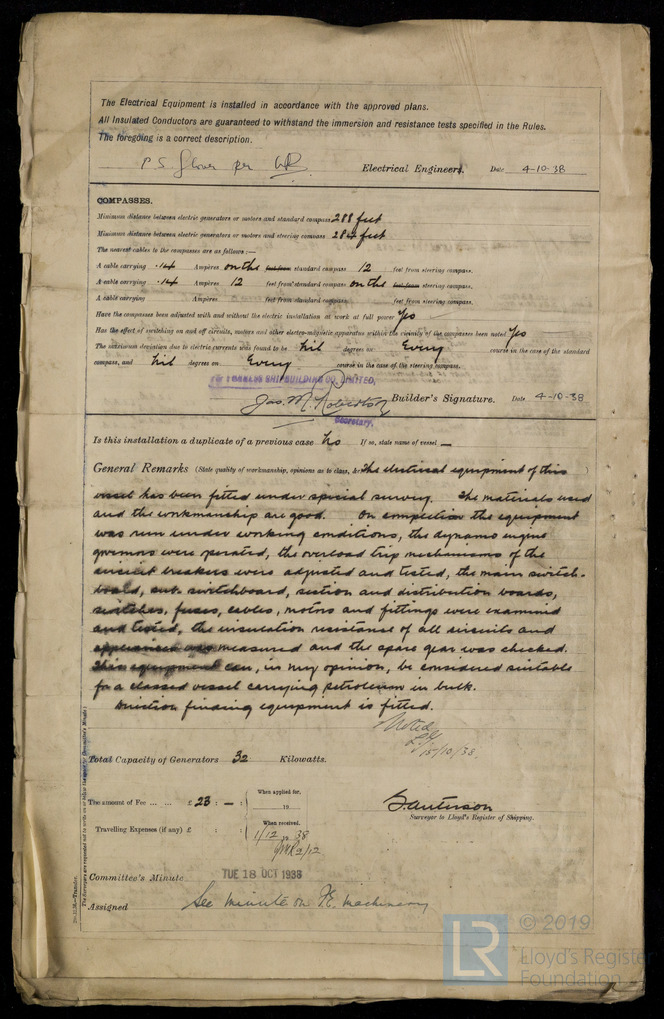 The Electrical Equipment is installed in accordance with the approved plans.
All Insulated Conductors are guaranteed to withstand the immersion and resistance tests specified in the Rules.
The foregoing is a correct description.
P. S. Glover per Electrical Engineers. Date 4-10-38
COMPASSES.
Minimum distance between electric generators or motors and standard compass 288 feet
Minimum distance between electric generators or motors and steering compass 284 feet
The nearest cables to the compasses are as follows:—
A cable carrying .14 Ampères on the feet from standard compass 12 feet from steering compass.
A cable carrying .14 Ampères 12 feet from standard compass on the feet from steering compass.
A cable carrying Ampères feet from standard compass feet from steering compass.
Have the compasses been adjusted with and without the electric installation at work at full power Yes
Has the effect of switching on and off circuits, motors and other electro-magnetic apparatus within the vicinity of the compasses been noted Yes
The maximum deviation due to electric currents was found to be nil degrees on Every course in the case of the standard
compass, and nil degrees on Every course in the case of the steering compass.
For FURNESS SHIPBUILDING CO. LIMITED,
Jas. M. Robertson Builder's Signature. Date 4-10-38
Secretary.
Is this installation a duplicate of a previous case No If so, state name of vessel —
General Remarks (State quality of workmanship, opinions as to class, &c. The electrical equipment of this )
vessel has been fitted under special survey. The materials used
and the workmanship are good. On completion the equipment
was run under working conditions, the dynamo engine
governors were operated, the overload trip mechanisms of the
circuit breakers were adjusted and tested, the main switch-
board, sub. switchboard, section and distribution boards,
switches, fuses, cables, motors and fittings were examined
and tested, the insulation resistance of all circuits and
appliances was measured and the spare gear was checked.
This equipment can, in my opinion, be considered suitable
for a classed vessel carrying petroleum in bulk.
Direction finding equipment is fitted.
Noted
15/10/38
Total Capacity of Generators 32 Kilowatts.
The amount of Fee ... ... £ 23 : — :
When applied for,
19
Travelling Expenses (if any) £ : :
When received,
1/12 19 38
Surveyor to Lloyd's Register of Shipping.
Committee's Minute TUE 18 OCT 1938
Assigned See minute on F.E. machinery
The Surveyors are requested not to write on or below the space for Committee's Minute.
© 2019
LR
Lloyd's Register
Foundation